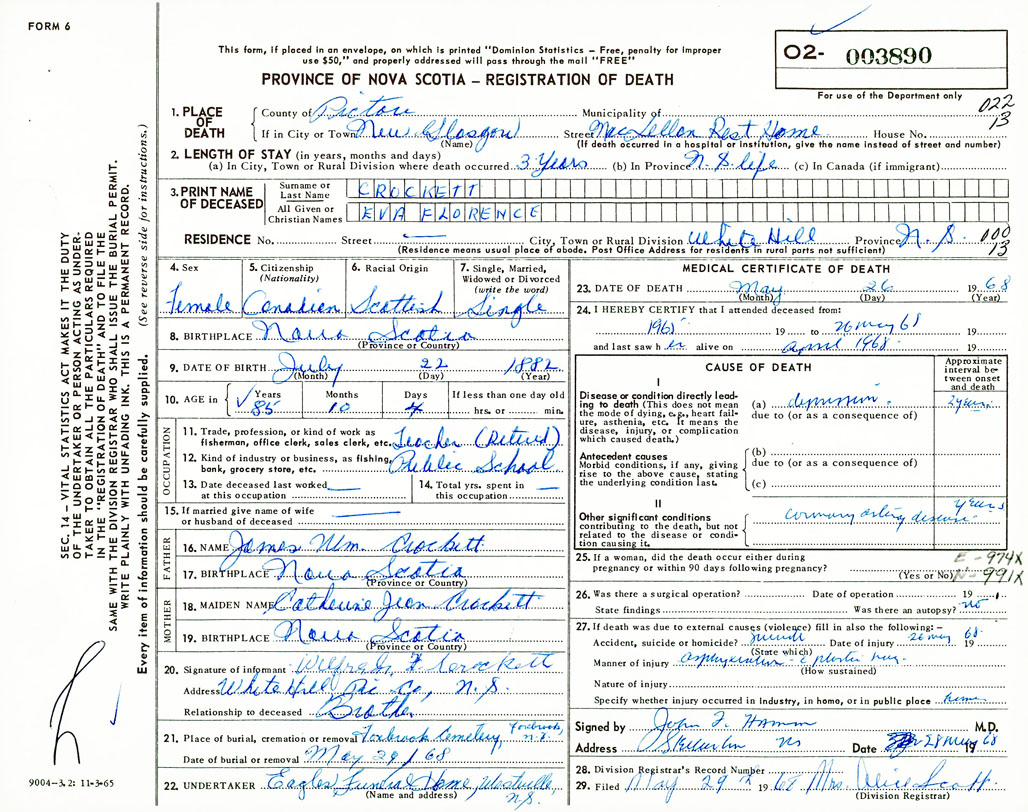 FORM 6
This form, if placed in an envelope, on which is printed "Dominion Statistics – Free, penalty for improper
use $50," and properly addressed will pass through the mail "FREE"
PROVINCE OF NOVA SCOTIA – REGISTRATION OF DEATH
O2- 003890
For use of the Department only
022
13
1. PLACE OF DEATH
County of Pictou Municipality of
If in City or Town New Glasgow Street MacLellan Rest Home House No.
(Name) (If death occurred in a hospital or institution, give the name instead of street and number)
2. LENGTH OF STAY (in years, months and days)
(a) In City, Town or Rural Division where death occurred 3 Years (b) In Province N. S. life (c) In Canada (if immigrant)
3. PRINT NAME OF DECEASED
Surname or Last Name CROCKETT
All Given or Christian Names EVA FLORENCE
RESIDENCE No. Street City, Town or Rural Division White Hill Province N. S.
000
13
(Residence means usual place of abode. Post Office Address for residents in rural parts not sufficient)
SEC. 14 – VITAL STATISTICS ACT MAKES IT THE DUTY
OF THE UNDERTAKER OR PERSON ACTING AS UNDER-
TAKER TO OBTAIN ALL THE PARTICULARS REQUIRED
IN THE "REGISTRATION OF DEATH" AND TO FILE THE
SAME WITH THE DIVISION REGISTRAR WHO SHALL ISSUE THE BURIAL PERMIT.
WRITE PLAINLY WITH UNFADING INK. THIS IS A PERMANENT RECORD.
Every item of information should be carefully supplied. (See reverse side for instructions.)
4. Sex
Female
5. Citizenship
(Nationality)
Canadian
6. Racial Origin
Scottish
7. Single, Married,
Widowed or Divorced
(write the word)
Single
8. BIRTHPLACE Nova Scotia
(Province or Country)
9. DATE OF BIRTH July 22 1882
(Month) (Day) (Year)
10. AGE in
Years Months Days If less than one day old
85 10 4 hrs. or min.
OCCUPATION
11. Trade, profession, or kind of work as
fisherman, office clerk, sales clerk, etc. Teacher (Retired)
12. Kind of industry or business, as fishing,
bank, grocery store, etc. Public School
13. Date deceased last worked
at this occupation
14. Total yrs. spent in
this occupation
15. If married give name of wife
or husband of deceased
FATHER
16. NAME James Wm. Crockett
17. BIRTHPLACE Nova Scotia
(Province or Country)
MOTHER
18. MAIDEN NAME Catherine Jean Crockett
19. BIRTHPLACE Nova Scotia
(Province or Country)
20. Signature of informant Wilfred F. Crockett
Address White Hill Pic. Co., N. S.
Relationship to deceased Brother
21. Place of burial, cremation or removal Foxbrook Cemetery, Foxbrook, N.S.
Date of burial or removal May 29/68
22. UNDERTAKER Eagles Funeral Home, Westville, N.S.
(Name and address)
9004-3.2: 11-3-65
MEDICAL CERTIFICATE OF DEATH
23. DATE OF DEATH May 26 1968
(Month) (Day) (Year)
24. I HEREBY CERTIFY that I attended deceased from:
1965 19 to 26 May 68 19
and last saw her alive on April 1968 19
CAUSE OF DEATH
Approximate
interval be-
tween onset
and death
I
Disease or condition directly lead-
ing to death (This does not mean
the mode of dying, e.g., heart fail-
ure, asthenia, etc. It means the
disease, injury, or complication
which caused death.)
(a) depression. 2 years.
due to (or as a consequence of)
Antecedent causes
Morbid conditions, if any, giving
rise to the above cause, stating
the underlying condition last.
(b)
due to (or as a consequence of)
(c)
II
Other significant conditions
contributing to the death, but not
related to the disease or condi-
tion causing it.
coronary artery disease. years
25. If a woman, did the death occur either during
pregnancy or within 90 days following pregnancy?
(Yes or No)
E-974X
N-991X
26. Was there a surgical operation? Date of operation 19
State findings Was there an autopsy? no
27. If death was due to external causes (violence) fill in also the following: –
Accident, suicide or homicide? Suicide Date of injury 26 May 68. 19
(State which)
Manner of injury asphyxiation - c plastic bag.
(How sustained)
Nature of injury
Specify whether injury occurred in Industry, in home, or in public place home
Signed by John F. M.D.
Address Stellarton NS Date 28 May 68 19
28. Division Registrar's Record Number
29. Filed May 29th 1968 Mrs. Alice Scott
(Division Registrar)